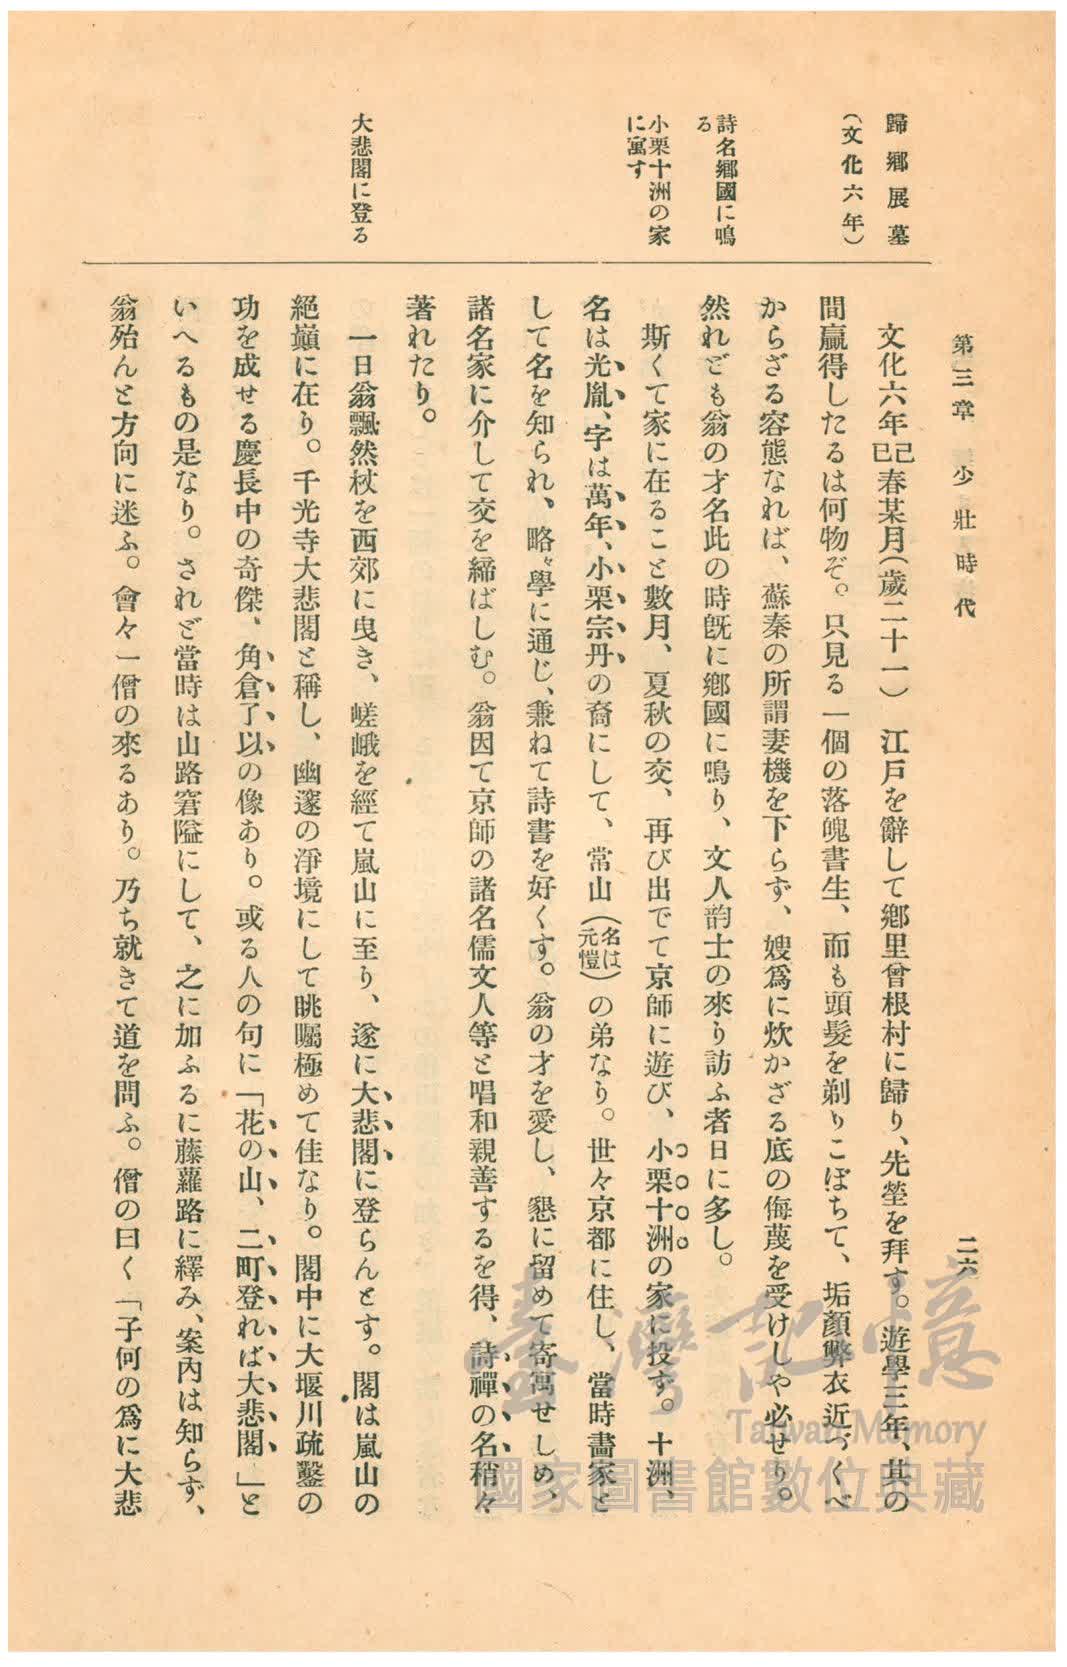 第三章　少壯時代　二六
歸鄕展墓
（文化六年）
詩名鄕國に鳴
る
小栗十洲の家
に寓す
大悲閣に登る
文化六年己巳春某月（歲二十一）　江戸を辭して鄕里曾根村に歸り、先塋を拜す。遊學三年、其の
間贏得したるは何物ぞ。只見る一個の落魄書生、而も頭髮を剃りこぼちて、垢顏弊衣近づくべ
からざる容態なれば、蘇秦の所謂妻機を下らず、嫂爲に炊かざる底の侮蔑を受けしや必せり。
然れども翁の才名此の時旣に鄕國に鳴り、文人韵士の來り訪ふ者日に多し。
斯くて家に在ること數月、夏秋の交、再び出でて京師に遊び、小栗十洲の家に投す。十洲、
名は光胤、字は萬年、小栗宗丹の裔にして、常山（名は元愷）の弟なり。世々京都に住し、當時畫家と
して名を知られ、略々學に通じ、兼ねて詩書を好くす。翁の才を愛し、懇に留めて寄寓せしめ、
諸名家に介して交を締ばしむ。翁因て京師の諸名儒文人等と唱和親善するを得、詩禪の名稍々
著れたり。
一日翁飄然杖を西郊に曳き、嵯峨を經て嵐山に至り、遂に大悲閣に登らんとす。閣は嵐山の
絕巓に在り。千光寺大悲閣と稱し、幽邃の淨境にして眺矚極めて佳なり。閣中に大堰川疏鑿の
功を成せる慶長中の奇傑、角倉了以の像あり。或る人の句に「花の山、二町登れば大悲閣」と
いへるもの是なり。されど當時は山路窘隘にして、之に加ふるに藤蘿路に繹み、案內は知らず、
翁殆んと方向に迷ふ。會々一僧の來るあり。乃ち就きて道を問ふ。僧の曰く「子何の爲に大悲
臺灣記憶
Taiwan Memory
國家圖書館數位典藏